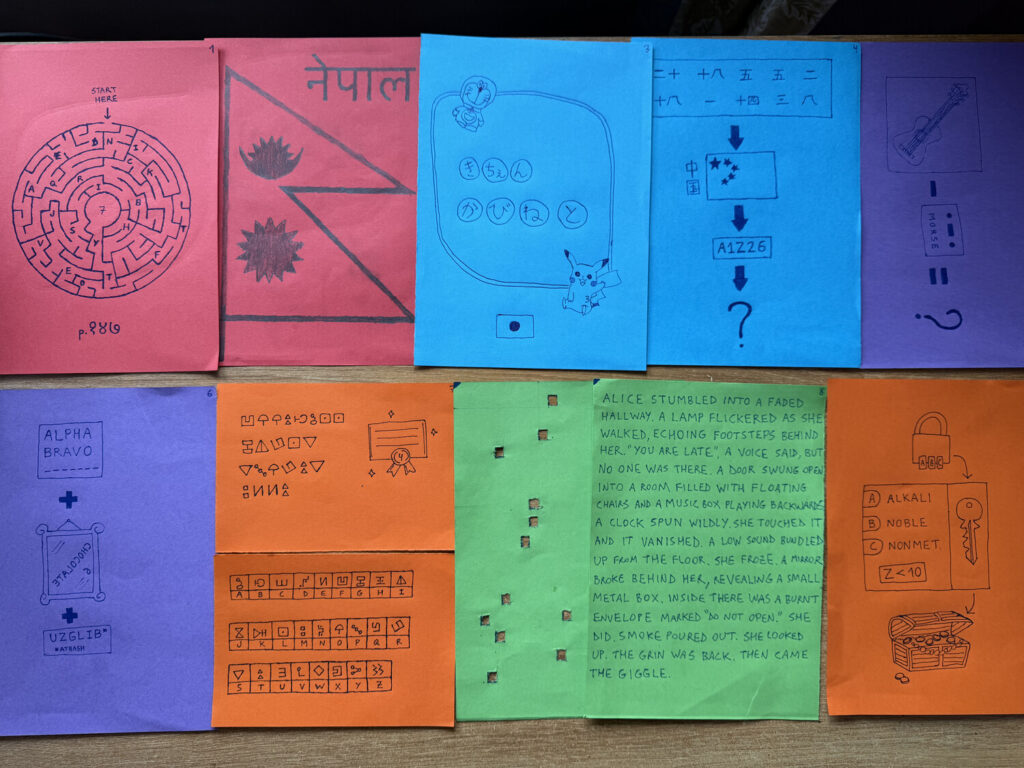 1
START
HERE
7
नेपाल
3
きちぇん
かびねと
4
二十 十八 五 五 二
十八 一 十四 三 八
中
国
A1Z26
?
MORSE
=
?
6
ALPHA
BRAVO
CHOCOLATE
+
UZGLIB*
*ATBASH
4
A B C D E F G H I
J K L M N O P Q R
S T U V W X Y Z
8
ALICE STUMBLED INTO A FADED
HALLWAY. A LAMP FLICKERED AS SHE
WALKED, ECHOING FOOTSTEPS BEHIND
HER. "YOU ARE LATE", A VOICE SAID, BUT
NO ONE WAS THERE. A DOOR SWUNG OPEN
INTO A ROOM FILLED WITH FLOATING
CHAIRS AND A MUSIC BOX PLAYING BACKWARDS
A CLOCK SPUN WILDLY. SHE TOUCHED IT
AND IT VANISHED. A LOW SOUND BUNDLED
UP FROM THE FLOOR. SHE FROZE. A MIRROR
BROKE BEHIND HER, REVEALING A SMALL
METAL BOX. INSIDE THERE WAS A BURNT
ENVELOPE MARKED "DO NOT OPEN." SHE
DID. SMOKE POURED OUT. SHE LOOKED
UP. THE GRIN WAS BACK. THEN CAME
THE GIGGLE.
A B C
A ALKALI
B NOBLE
C NONMET.
Z<10